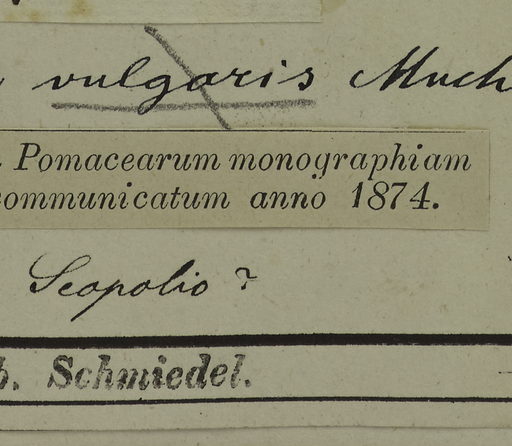 vulgaris Much
Pomacearum monographiam
communicatum anno 1874.
Scopolio ?
b. Schmiedel.